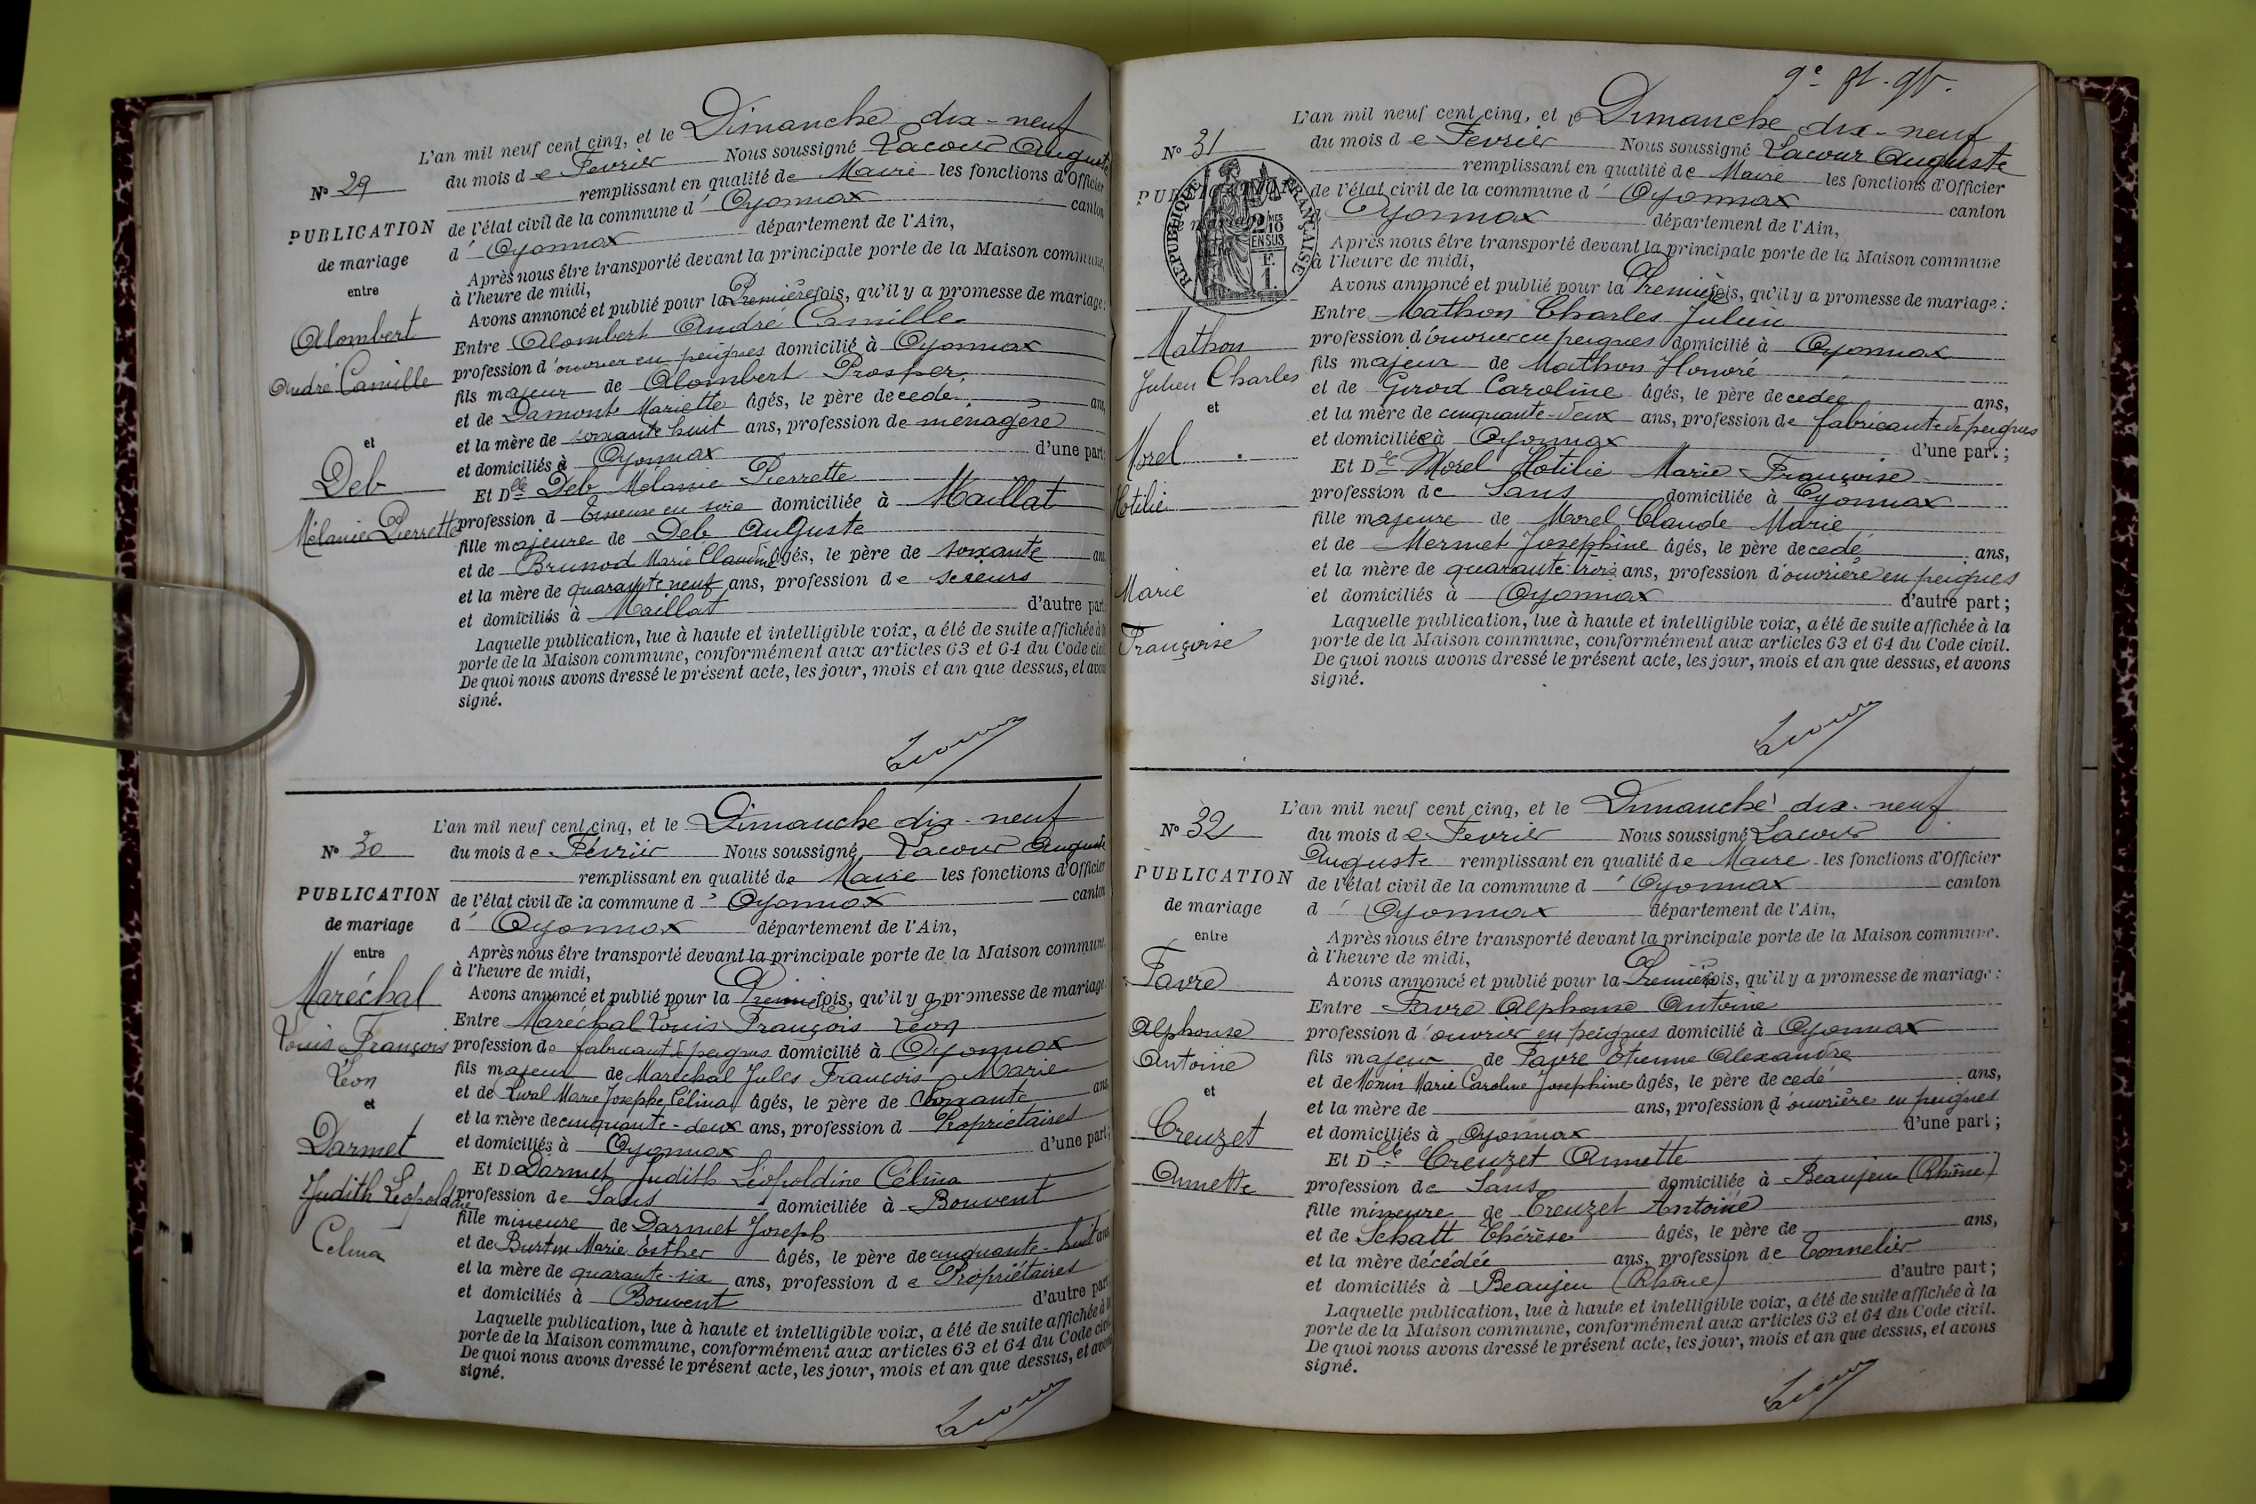 L'an mil neuf cent cinq, et le Dimanche dix-neuf
du mois de Fevrier Nous soussigné Lacour Auguste
remplissant en qualité de Maire les fonctions d'Officier
de l'état civil de la commune d' Oyonnax canton
d' Oyonnax département de l'Ain,
Après nous être transporté devant la principale porte de la Maison commune,
à l'heure de midi,
Avons annoncé et publié pour la Première fois, qu'il y a promesse de mariage :
Entre Alombert André Camille
profession d'ouvrier en peignes domicilié à Oyonnax
fils majeur de Alombert Prosper,
et de Damont Mariette âgés, le père decede ans,
et la mère de soixante huit ans, profession de ménagère
et domiciliés à Oyonnax d'une part;
Et Dlle Deb Mélanie Pierrette
profession d Tisseuse en soie domiciliée à Maillat
fille majeure de Deb Auguste
et de Brunod Marie Claudine âgés, le père de soixante ans
et la mère de quarante neuf ans, profession de scieurs
et domiciliés à Maillat d'autre part
Laquelle publication, lue à haute et intelligible voix, a été de suite affichée à la
porte de la Maison commune, conformément aux articles 63 et 64 du Code civil.
De quoi nous avons dressé le présent acte, les jour, mois et an que dessus, et avons
signé.
Lacour
N° 29
PUBLICATION
de mariage
entre
Alombert
André Camille
et
Deb
Mélanie Pierrette
L'an mil neuf cent cinq, et le Dimanche dix-neuf
du mois de Février Nous soussigné Lacour Auguste
remplissant en qualité de Maire les fonctions d'Officier
de l'état civil de la commune d' Oyonnax canton
d' Oyonnax département de l'Ain,
Après nous être transporté devant la principale porte de la Maison commune,
à l'heure de midi,
Avons annoncé et publié pour la Première fois, qu'il y a promesse de mariage
Entre Maréchal Louis François Léon
profession de fabricant de peignes domicilié à Oyonnax
fils majeur de Maréchal Jules François Marie
et de Marie Josephe Célina âgés, le père de soixante ans
et la mère de cinquante-deux ans, profession d Propriétaires
et domiciliés à Oyonnax d'une part;
Et D Darmet Judith Léopoldine Célina
profession de Sans domiciliée à Bouvent
fille mineure de Darmet Joseph
et de Burtin Marie Esther âgés, le père de cinquante-huit ans
et la mère de quarante-six ans, profession de Propriétaires
et domiciliés à Bouvent d'autre part
Laquelle publication, lue à haute et intelligible voix, a été de suite affichée à la
porte de la Maison commune, conformément aux articles 63 et 64 du Code civil.
De quoi nous avons dressé le présent acte, les jour, mois et an que dessus, et avons
signé.
Lacour
N° 30
PUBLICATION
de mariage
entre
Maréchal
Louis François
Léon
et
Darmet
Judith Léopoldine
Celina
L'an mil neuf cent cinq, et le Dimanche dix-neuf
du mois de Fevrier Nous soussigné Lacour Auguste
remplissant en qualité de Maire les fonctions d'Officier
de l'état civil de la commune d' Oyonnax canton
d' Oyonnax département de l'Ain,
Après nous être transporté devant la principale porte de la Maison commune
à l'heure de midi,
Avons annoncé et publié pour la Première fois, qu'il y a promesse de mariage :
Entre Mathon Charles Julien
profession d'ouvrier en peignes domicilié à Oyonnax
fils majeur de Mathon Honoré
et de Girod Caroline âgés, le père decedée ans,
et la mère de cinquante-deux ans, profession de fabricante de peignes
et domiciliée à Oyonnax d'une part ;
Et Dlle Morel Hotilie Marie Françoise
profession de Sans domiciliée à Oyonnax
fille majeure de Morel Claude Marie
et de Mermet Josephine âgés, le père decedé ans,
et la mère de quarante-trois ans, profession d'ouvrière en peignes
et domiciliés à Oyonnax d'autre part ;
Laquelle publication, lue à haute et intelligible voix, a été de suite affichée à la
porte de la Maison commune, conformément aux articles 63 et 64 du Code civil.
De quoi nous avons dressé le présent acte, les jour, mois et an que dessus, et avons
signé.
Lacour
N° 31
PUBLICATION
REPUBLIQUE FRANÇAISE
2/10
EN SUS
F.
1.
Mathon
Julien Charles
et
Morel
Hotilie
Marie
Françoise
L'an mil neuf cent cinq, et le Dimanche dix-neuf
du mois de Fevrier Nous soussigné Lacour
Auguste remplissant en qualité de Maire les fonctions d'Officier
de l'état civil de la commune d' Oyonnax canton
d' Oyonnax département de l'Ain,
Après nous être transporté devant la principale porte de la Maison commune.
à l'heure de midi,
Avons annoncé et publié pour la Première fois, qu'il y a promesse de mariage :
Entre Favre Alphonse Antoine
profession d'ouvrier en peignes domicilié à Oyonnax
fils majeur de Favre Etienne Alexandre
et de Monin Marie Caroline Josephine âgés, le père de cedé ans,
et la mère de ans, profession d'ouvrière en peignes
et domiciliés à Oyonnax d'une part ;
Et Dlle Creuzet Annette
profession de Sans domiciliée à Beaujeu (Rhône)
fille mineure de Creuzet Antoine
et de Schatt Thérèse âgés, le père de ans,
et la mère décédée ans, profession de Tonnelier
et domiciliés à Beaujeu (Rhône) d'autre part ;
Laquelle publication, lue à haute et intelligible voix, a été de suite affichée à la
porte de la Maison commune, conformément aux articles 63 et 64 du Code civil.
De quoi nous avons dressé le présent acte, les jour, mois et an que dessus, et avons
signé.
Lacour
N° 32
PUBLICATION
de mariage
entre
Favre
Alphonse
Antoine
et
Creuzet
Annette